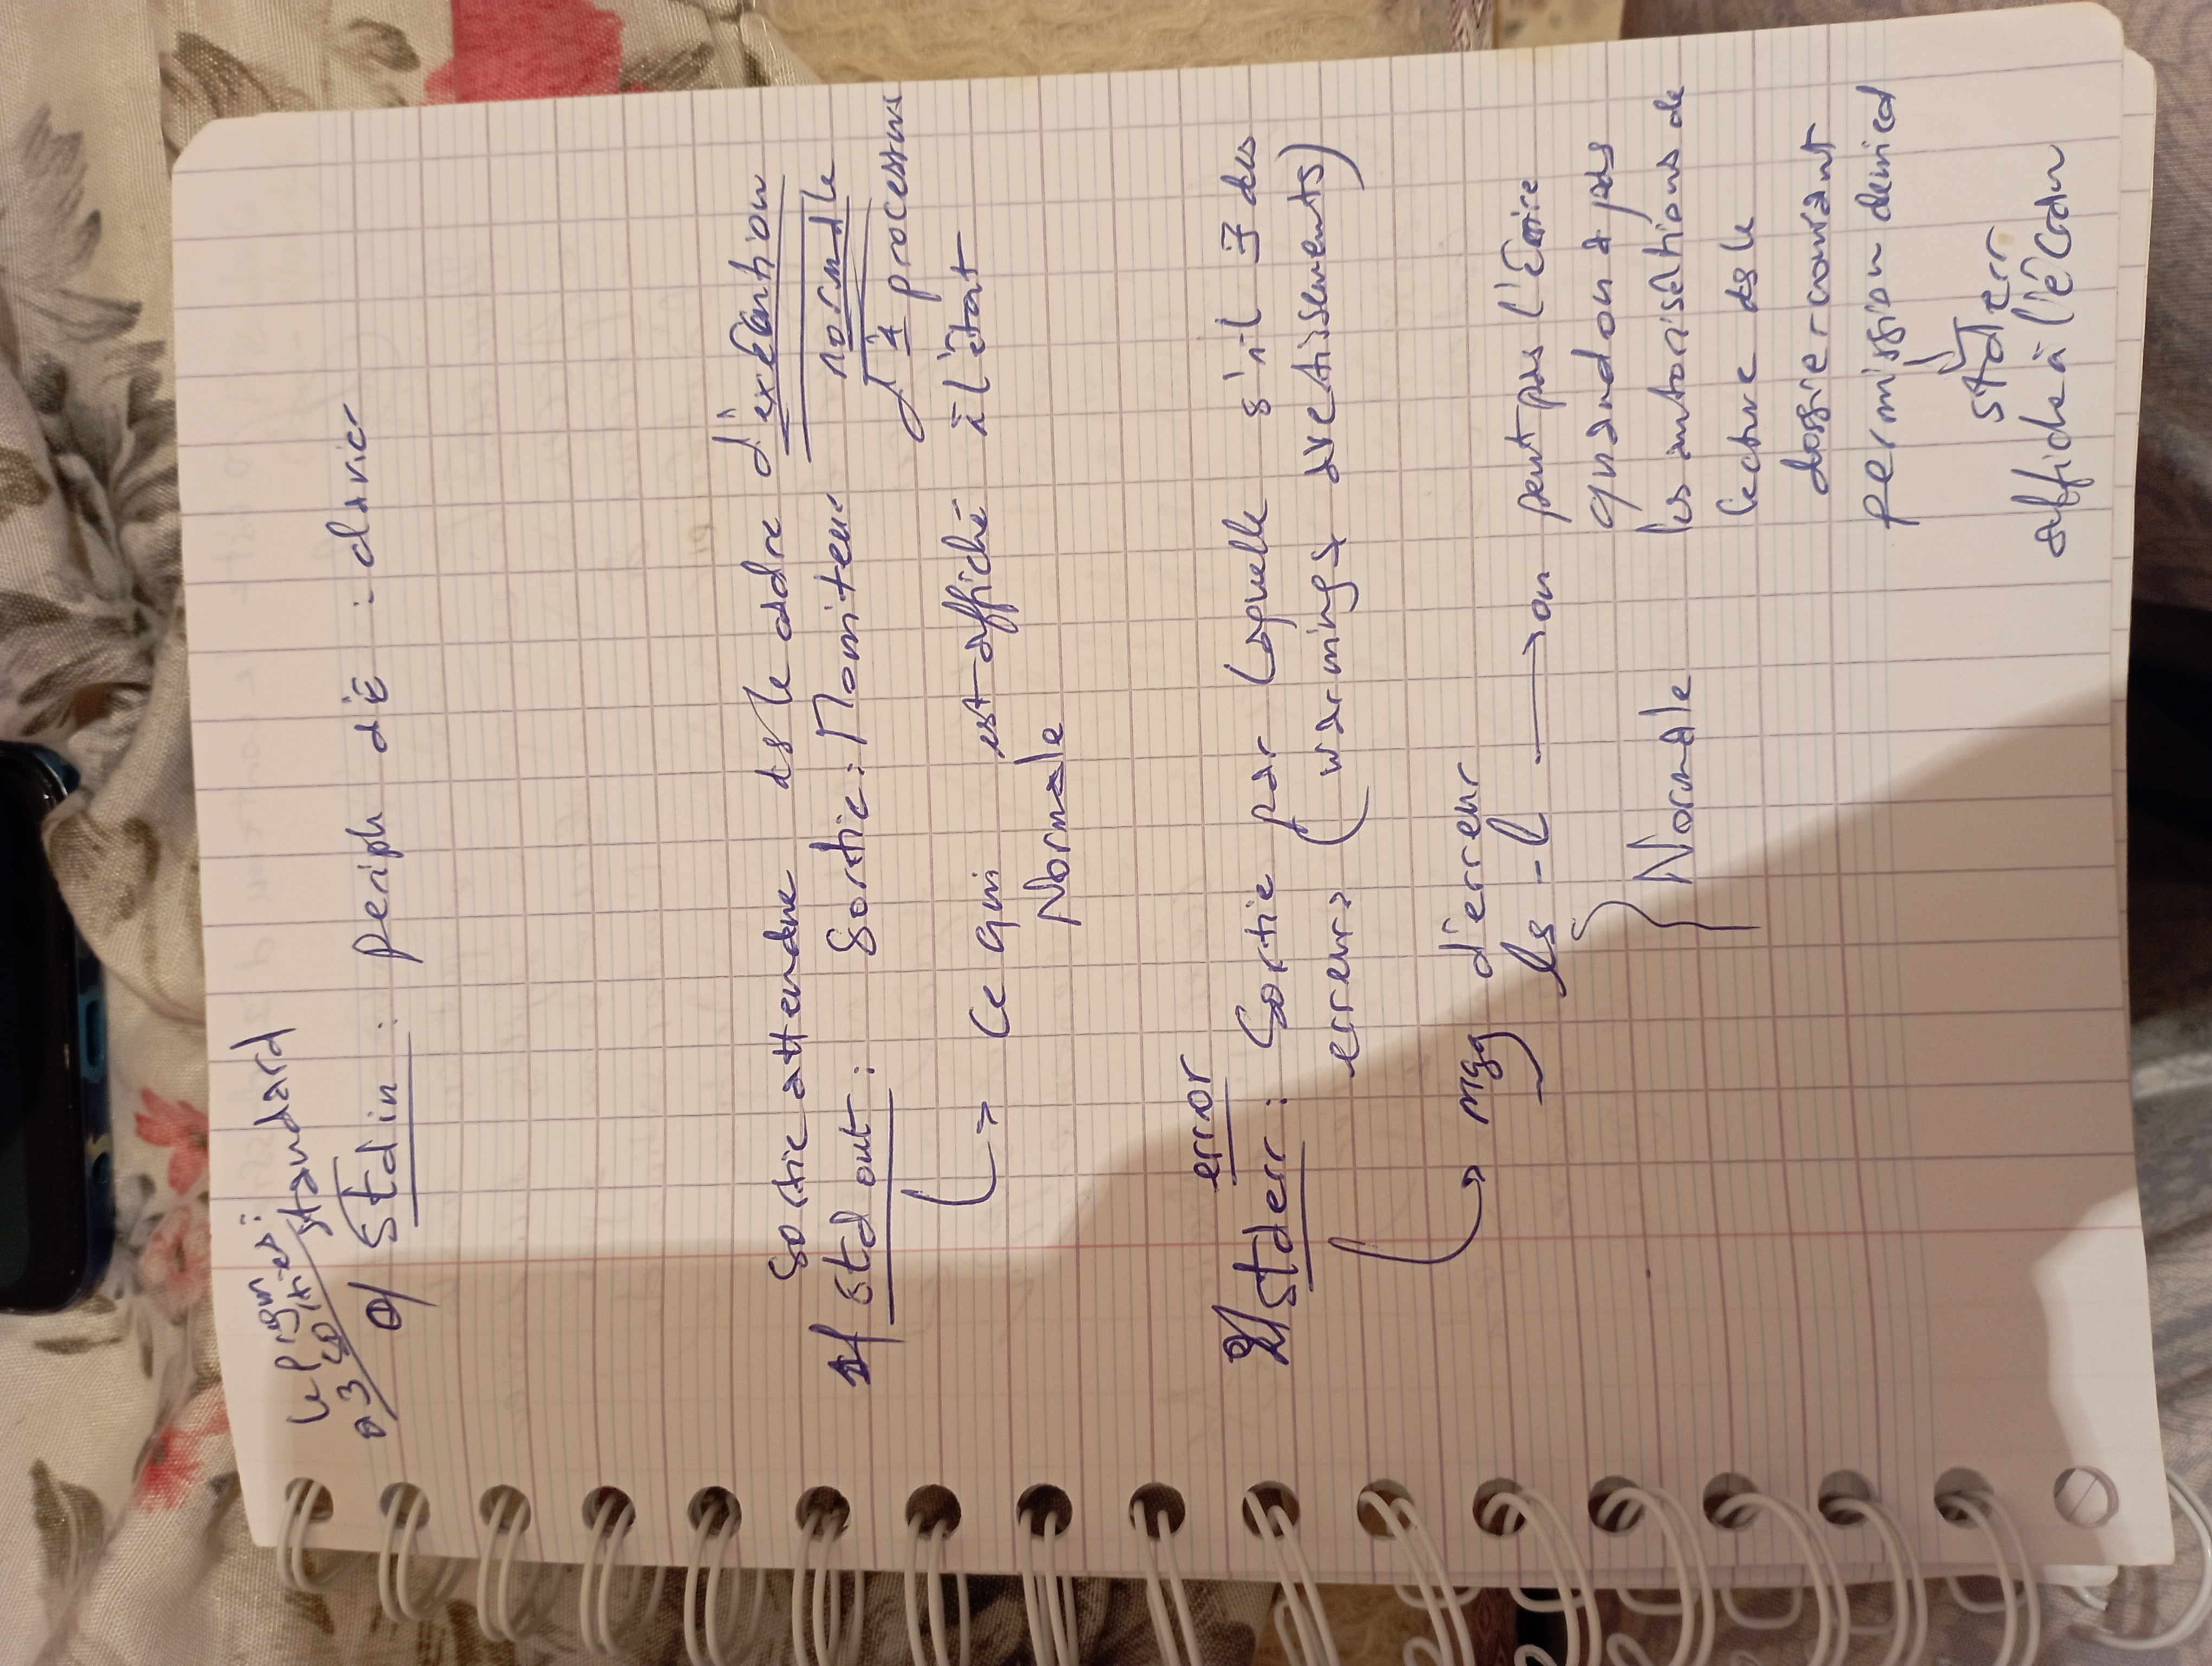 le prgm
a 3 sorties :
standard
0/ Stdin : periph d'E : clavier
Sortie attendue ds le cadre d'exécution
normale
1/ Std out : Sortie : Moniteur
d'1 processus
↳ Ce qui est affiché à l'état
Normale
error
2/ stderr : Sortie par laquelle s'il ∃ des
erreurs (warnings avertissements)
↳ msg d'erreur
ls -l → on peut pas l'écrire
quand on a pas
Normale les autorisations de
lecture ds le
dossier courant
permission denied
↓
stderr
affiche à l'écran